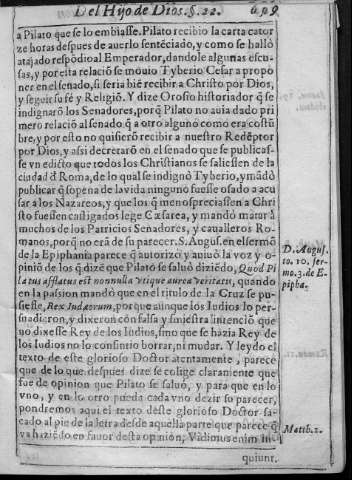 Del Hijo de Dios. §. 22. 609
a Pilato que se lo embiasse. Pilato recibio la carta cator
ze horas despues de auerlo sentēciado, y como se hallò
atajado respōdio al Emperador, dandole algunas escu-
sas, y por esta relació se mouio Tyberio Cesar a propo
ner en el senado, si seria biē recebir a Christo por Dios,
y seguir su fé y Religiō. Y dize Orosio historiador q̄ se
indignarō los Senadores, porq̄ Pilato no auia dado pri
mero relació al senado q̄ a otro alguno como era costū
bre, y por esto no quisierō recibir a nuestro Redēptor
por Dios, y assi decretarō en el senado que se publicas-
se vn edicto que todos los Christianos se saliessen de la
ciudad d̄ Roma, de lo qual se indignò Tyberio, y mādò
publicar q̄ so pena de la vida ninguno fuesse osado a acu
sar a los Nazareos, y que los q̄ menospreciassen a Chri
sto fuessen castigados lege Cæsarea, y mandò matar à
muchos de los Patricios Senadores, y caualleros Ro-
manos, porq̄ no erā de su parecer. S. Augus. en el sermō
de la Epiphania parece q̄ autorizò y auiuò la voz y o-
piniō de los q̄ dizē que Pilato se saluò diziēdo, Quòd Pi
latus afflatus est nonnulla vtique aurea veritatis, quando
en la passion mandò que en el titulo de la Cruz se pu-
siesse, Rex Iudæorum, porque aunque los Iudios lo per-
suadierō, y dixeron con falsa y siniestra intenció que
no dixesse Rey de los Iudios, sino que se hazia Rey de
los Iudios no lo consintio borrar, ni mudar. Y leydo el
texto de este glorioso Doctor atentamente, parece
que de lo que despues dize se colige claramente que
fue de opinion que Pilato se saluò, y para que en lo
vno, y en lo otro pueda cada vno dezir su parecer,
pondremos aqui el texto deste glorioso Doctor sa-
cado al pie de la letra desde aquella parte que parece q̄
va haziēdo en fauor desta opinion, Vidimus enim in-
quiunt.
D. Augus.
to. 10. ser-
mo. 3. de E-
pipha.
Matth. 2.